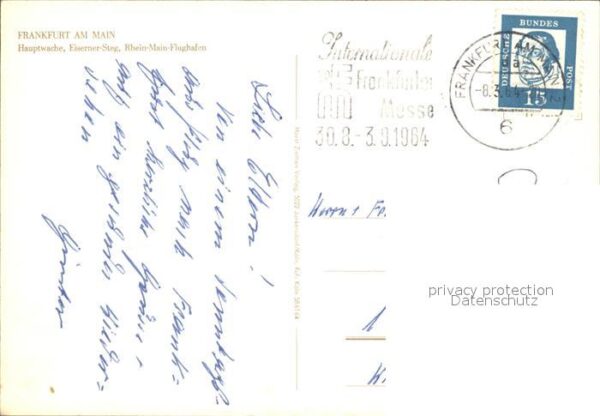 FRANKFURT AM MAIN
Hauptwache, Eiserner-Steg, Rhein-Main-Flughafen
Liebe Eltern!
Von einem
ausflug nach Frank-
furt herzliche Grüsse,
auf ein gesundes Wieder-
sehen
Günter
Internationale
Frankfurter
Messe
30.8.-3.9.1964
FRANKFURT AM MAIN
a
-8.3.64
6
BUNDES
POST
DEUTSCHE
15
Herrn + Fr.
privacy protection
Datenschutz